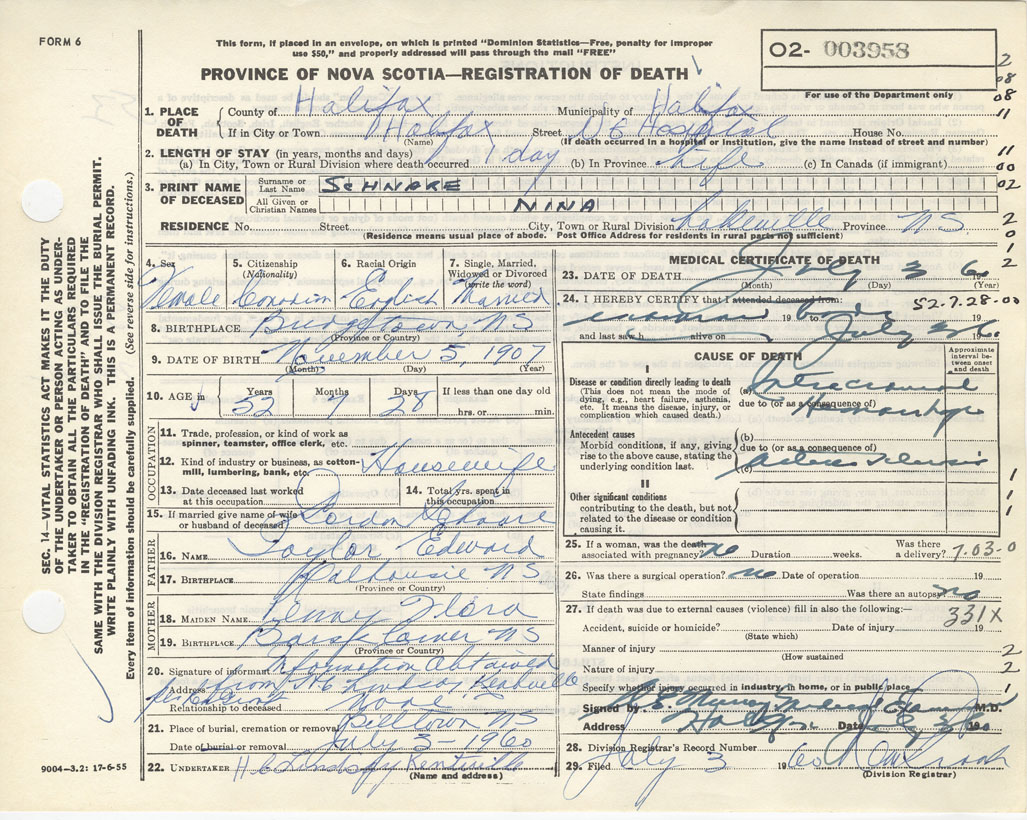 FORM 6
This form, if placed in an envelope, on which is printed "Dominion Statistics—Free, penalty for improper
use $50," and properly addressed will pass through the mail "FREE"
PROVINCE OF NOVA SCOTIA—REGISTRATION OF DEATH
O2- 003958
For use of the Department only
2
08
08
11
11
00
02
2
0
1
2
1. PLACE OF DEATH
County of Halifax Municipality of Halifax
If in City or Town Halifax Street Hospital House No.
(Name) (If death occurred in a hospital or institution, give the name instead of street and number)
2. LENGTH OF STAY (in years, months and days)
(a) In City, Town or Rural Division where death occurred 1 day (b) In Province Life (c) In Canada (if immigrant)
3. PRINT NAME OF DECEASED
Surname or Last Name SCHNARE
All Given or Christian Names NINA
RESIDENCE No. Street City, Town or Rural Division Lakeville Province NS
(Residence means usual place of abode. Post Office Address for residents in rural parts not sufficient)
4. Sex Female
5. Citizenship (Nationality) Canadian
6. Racial Origin English
7. Single, Married, Widowed or Divorced (write the word) Married
8. BIRTHPLACE Bridgetown NS
(Province or Country)
9. DATE OF BIRTH November 5, 1907
(Month) (Day) (Year)
10. AGE Years 52 Months 7 Days 28 If less than one day old
hrs. or min.
OCCUPATION
11. Trade, profession, or kind of work as spinner, teamster, office clerk, etc.
12. Kind of industry or business, as cotton-mill, lumbering, bank, etc. Housewife
13. Date deceased last worked at this occupation
14. Total yrs. spent in this occupation
15. If married give name of wife or husband of deceased Gordon Schnare
FATHER
16. NAME Taylor Edward
17. BIRTHPLACE Dalhousie NS
(Province or Country)
MOTHER
18. MAIDEN NAME Flora
19. BIRTHPLACE NS
(Province or Country)
20. Signature of informant Information Obtained
Address from H C Lindsay Kentville
Relationship to deceased None
21. Place of burial, cremation or removal Billtown NS
Date of burial or removal July 3 - 1960
22. UNDERTAKER H C Lindsay Kentville
(Name and address)
9004-3.2: 17-6-55
MEDICAL CERTIFICATE OF DEATH
23. DATE OF DEATH July 3 60
(Month) (Day) (Year)
24. I HEREBY CERTIFY that I attended deceased from:
52.7.28-00
examined 19 body
and last saw h alive on July 3 60
CAUSE OF DEATH
Approximate interval between onset and death
I
Disease or condition directly leading to death
(This does not mean the mode of dying, e.g., heart failure, asthenia, etc. It means the disease, injury, or complication which caused death.)
(a) Intracranial
due to (or as a consequence of)
Hemorrhage
Antecedent causes
Morbid conditions, if any, giving rise to the above cause, stating the underlying condition last.
(b)
due to (or as a consequence of)
(c)
II
Other significant conditions contributing to the death, but not related to the disease or condition causing it.
1
1
1
25. If a woman, was the death associated with pregnancy? no Duration weeks. Was there a delivery? 7.03-0
26. Was there a surgical operation? no Date of operation 19
State findings Was there an autopsy? no
27. If death was due to external causes (violence) fill in also the following:—
331X
Accident, suicide or homicide? Date of injury 19
(State which)
Manner of injury 2
(How sustained)
Nature of injury 2
Specify whether injury occurred in industry, in home, or in public place 1
Signed by M.D.
Address Halifax Date 1960
28. Division Registrar's Record Number
29. Filed July 3 1960
(Division Registrar)
SEC. 14—VITAL STATISTICS ACT MAKES IT THE DUTY
OF THE UNDERTAKER OR PERSON ACTING AS UNDER-
TAKER TO OBTAIN ALL THE PARTICULARS REQUIRED
IN THE "REGISTRATION OF DEATH" AND TO FILE THE
SAME WITH THE DIVISION REGISTRAR WHO SHALL ISSUE THE BURIAL PERMIT.
WRITE PLAINLY WITH UNFADING INK. THIS IS A PERMANENT RECORD.
Every item of information should be carefully supplied. (See reverse side for instructions.)